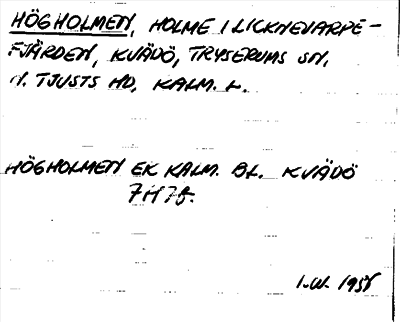 HÖGHOLMEN, HOLME I LICKNEVARPE-
FJÄRDEN, KVÄDÖ, TRYSERUMS SN,
N. TJUSTS HD, KALM. L.
HÖGHOLMEN EK KALM. BL. KVÄDÖ
7H7b.
I.W. 1958